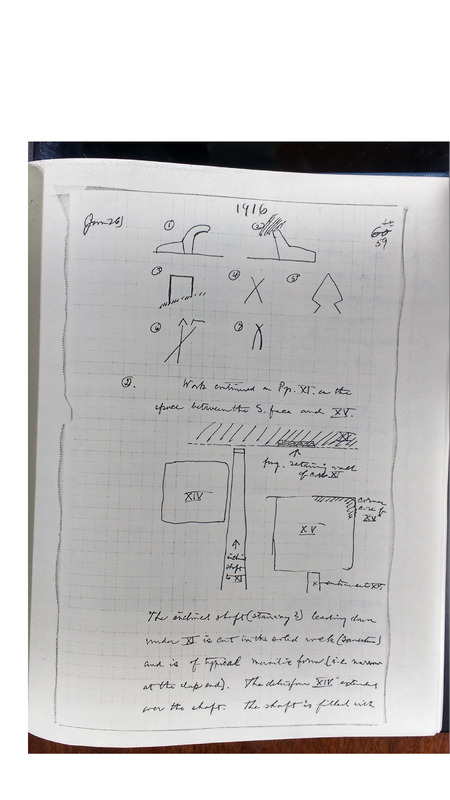 1916
Jan 26)
60
59
① ②
③ ④ ⑤
⑥ ⑦
②. Work continued on Pyr. XI. in the
space between the S. face and XV.
XI
frag. retaining wall
of case XI
XIV
XV
corner
case for
XV
↑
incline
shaft
to XI
x entrance to XV.
The inclined shaft (stairway?) leading down
under XI is cut in the solid rock (sandstone)
and is of typical form (i.e. narrow
at the deep end). The debris from XIV extends
over the shaft. The shaft is filled with